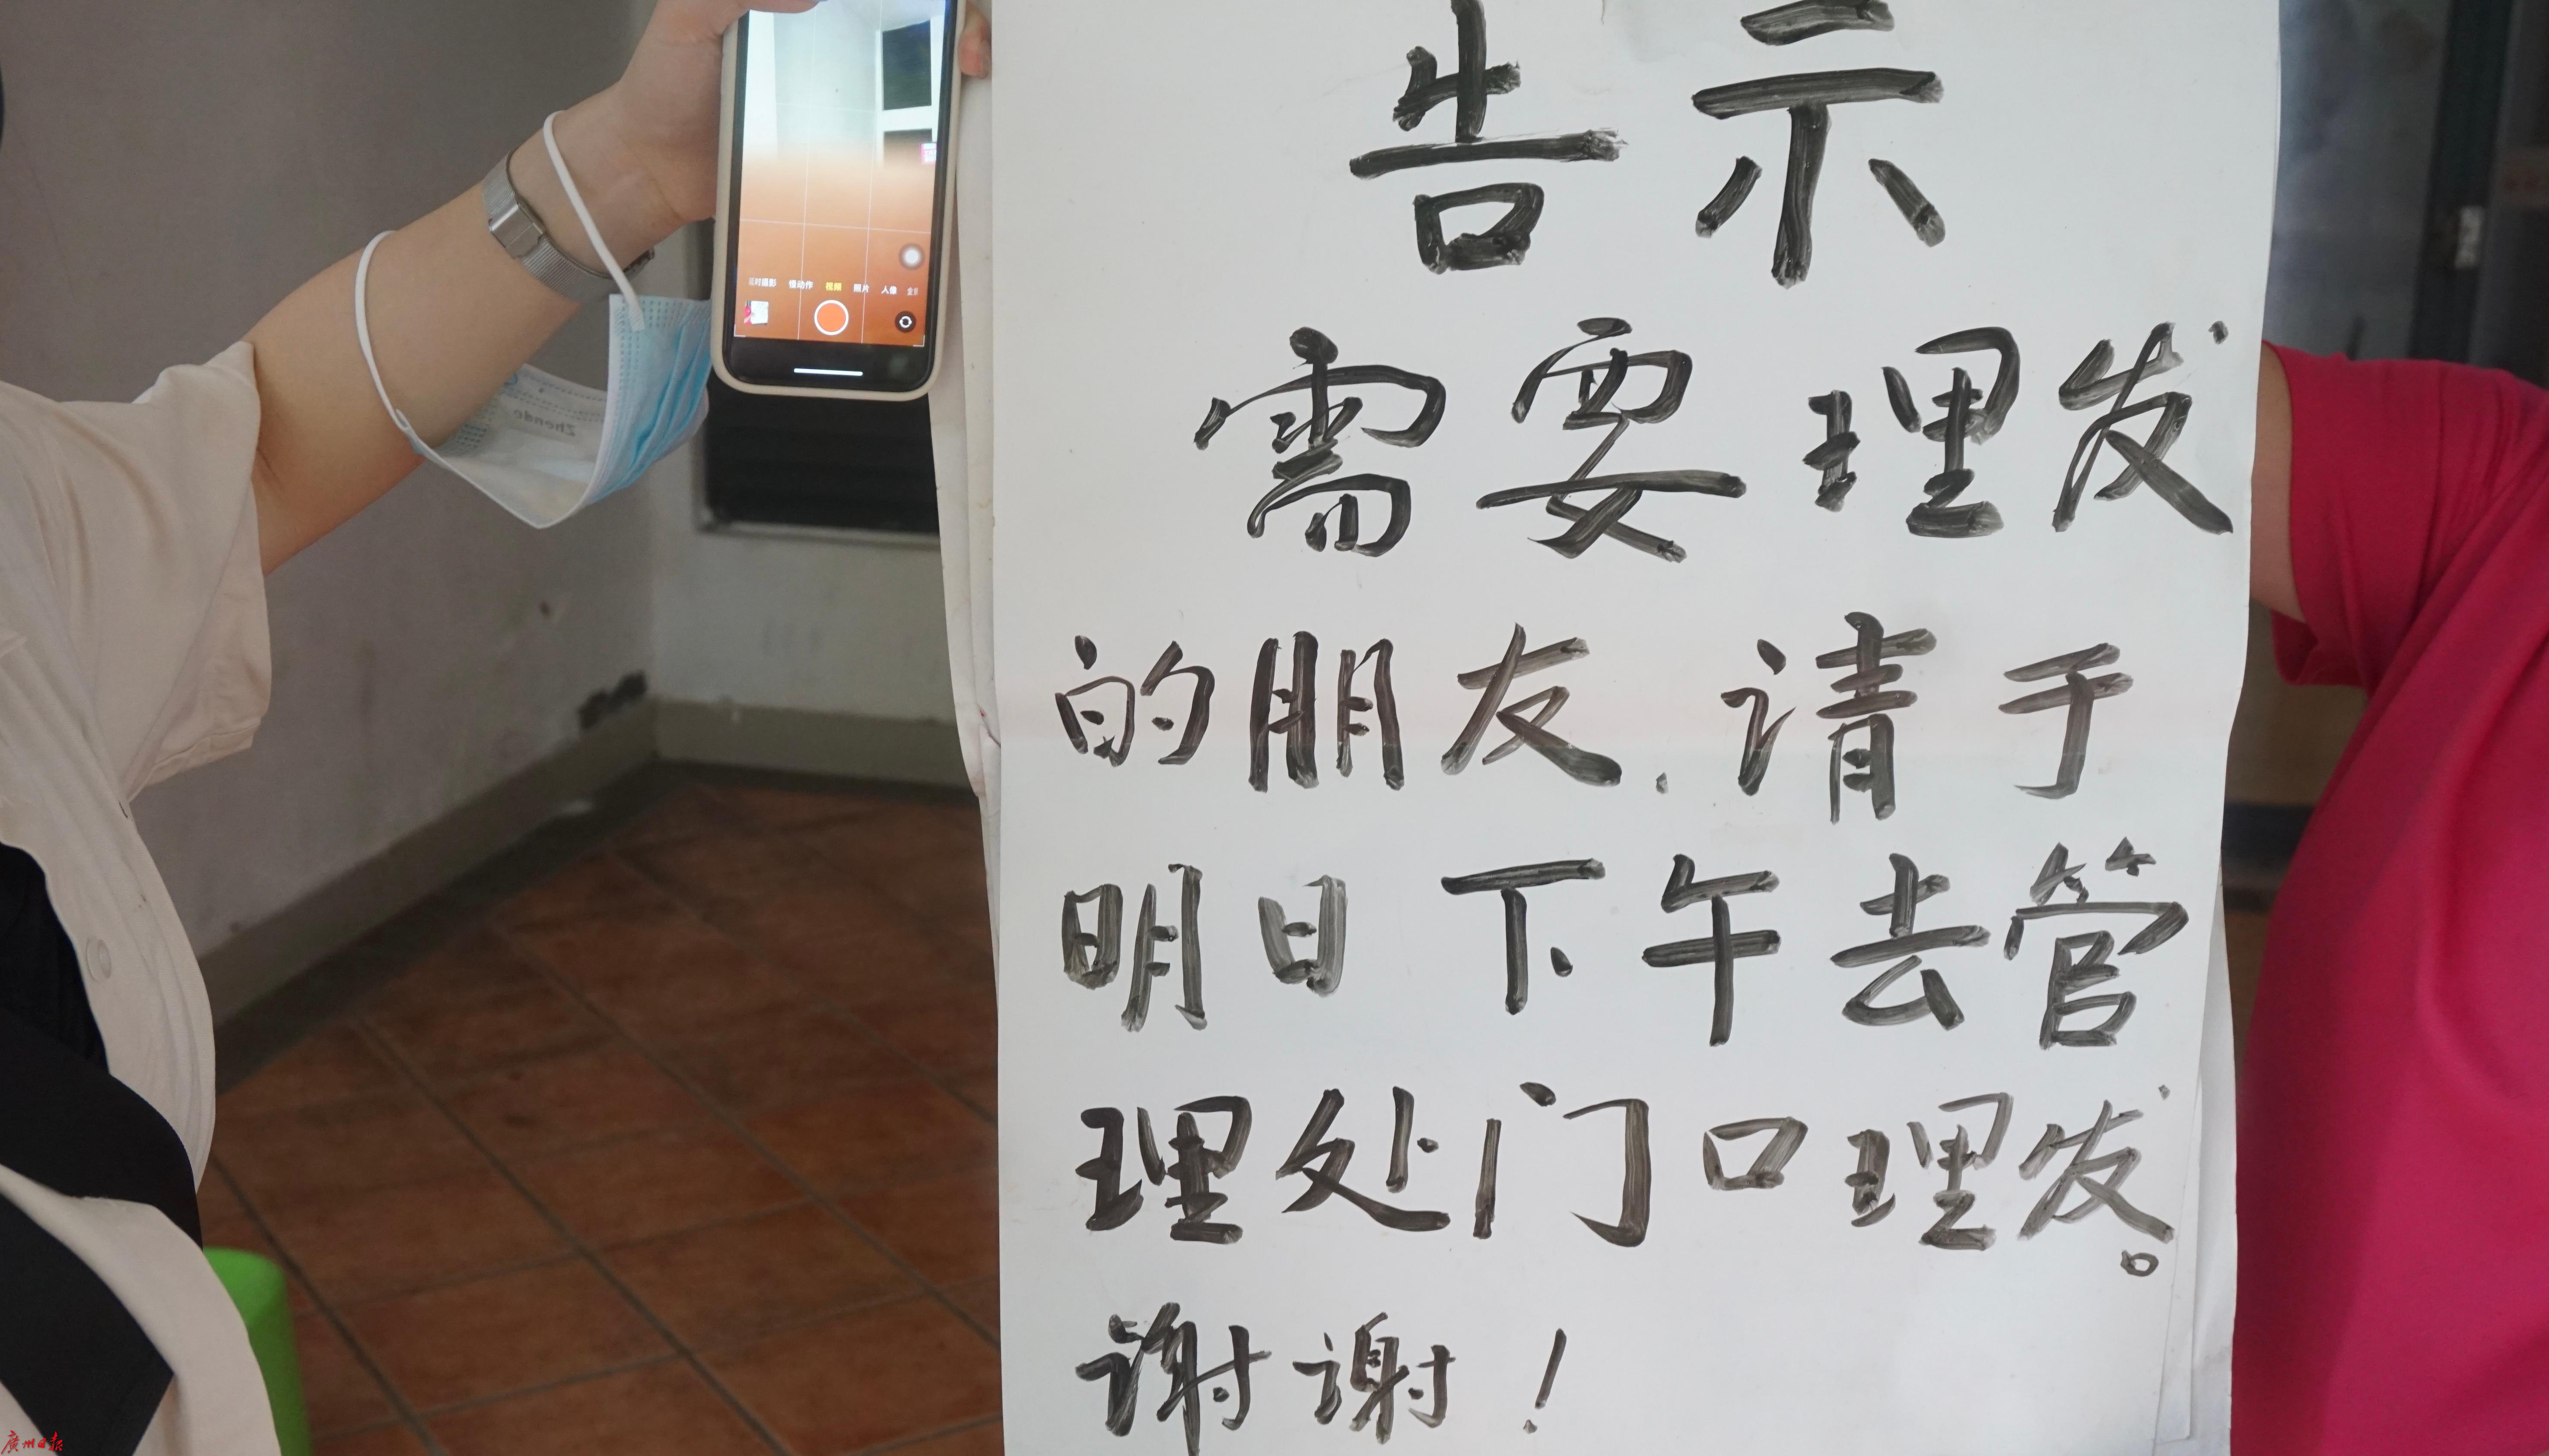 告示
需要理发
的朋友.请于
明日下午去管
理处门口理发。
谢谢!
延时摄影 慢动作 视频 照片 人像
Zhende
廣州日报